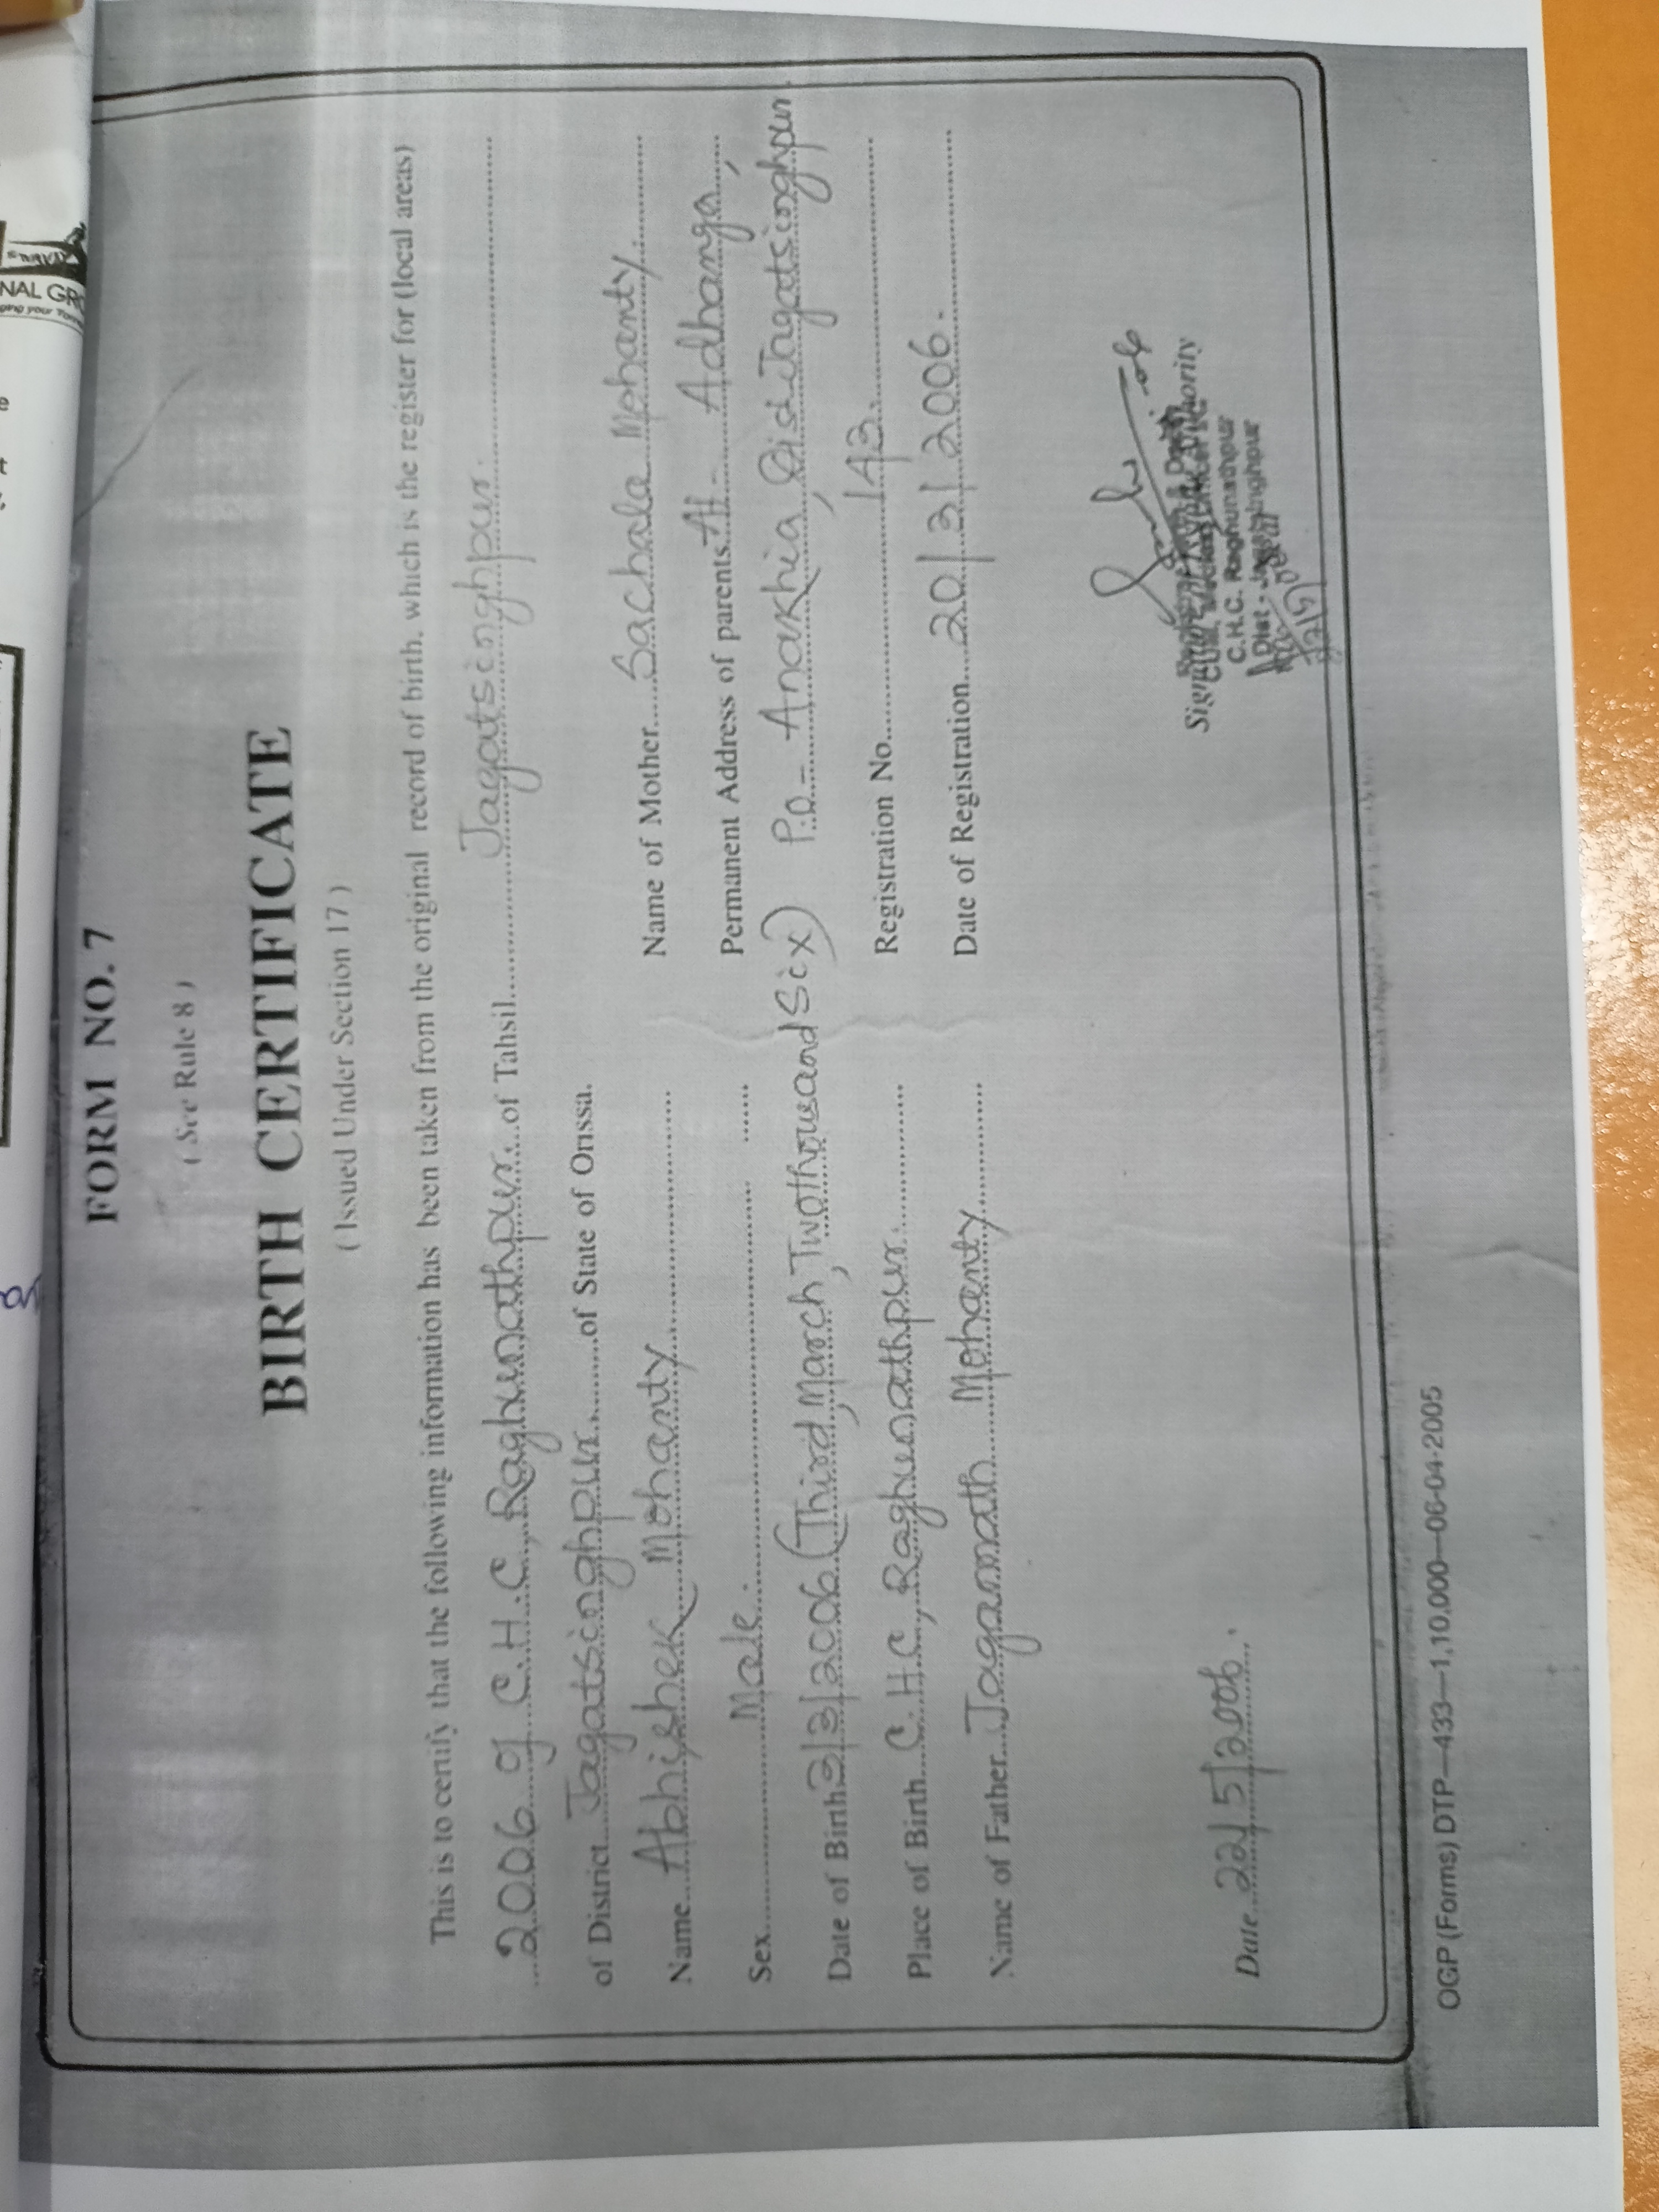 FORM NO. 7
( See Rule 8 )
BIRTH CERTIFICATE
( Issued Under Section 17 )
This is to certify that the following information has been taken from the original record of birth, which is the register for (local areas)
2006 of C.H.C, Raghunathpur of Tahsil Jagatsinghpur.
of District Jagatsinghpur of State of Orissa.
Name Abhishek Mohanty
Name of Mother Sachala Mohanty.
Sex Male.
Permanent Address of parents At - Adhanga,
Date of Birth 3/3/2006 (Third, March, Twothousand Six)
P.o - Anakhia, Dist Jagatsinghpur.
Place of Birth C.H.C, Raghunathpur.
Registration No. 143.
Name of Father Jagannath Mohanty
Date of Registration 20/3/2006.
Date 22/5/2006.
C.H.C. Raghunathpur
Dist - Jagatsinghpur
OGP (Forms) DTP—433—1,10,000—06-04-2005
NAL GR